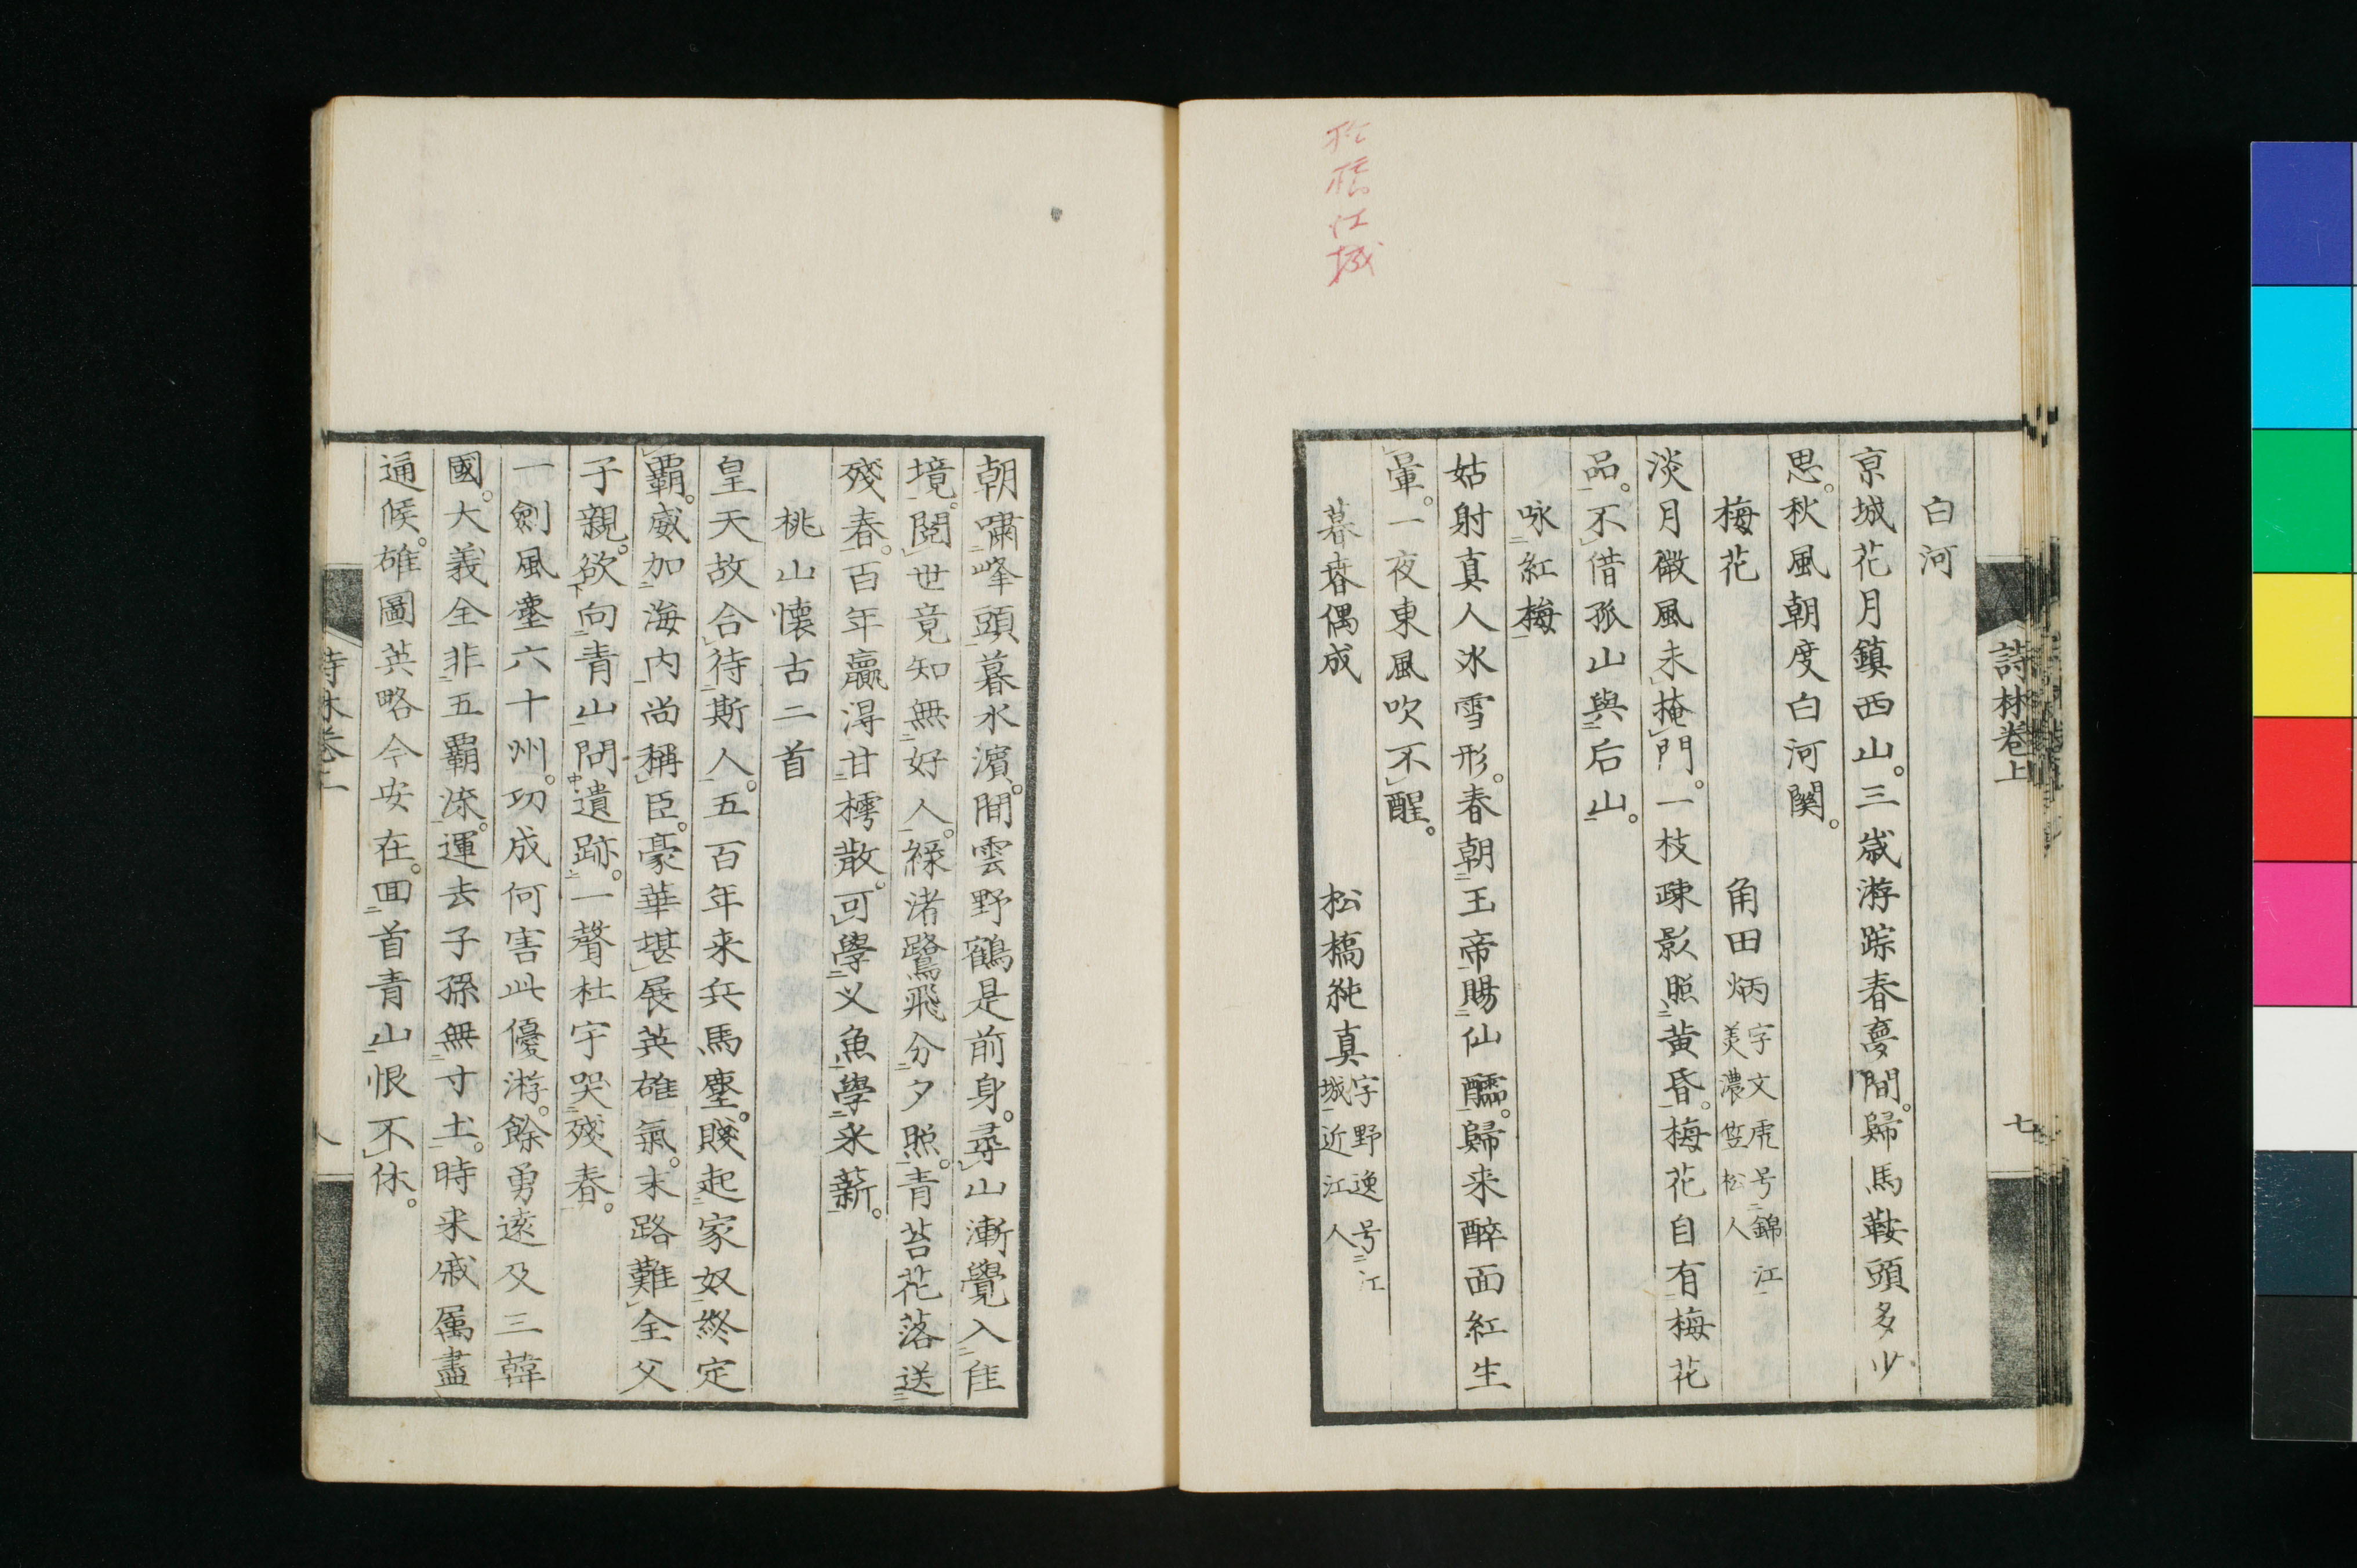 松橋江城
詩林巻上
七
白河
京城花月鎮西山。三歳游踪春夢間。歸馬鞍頭多少
思。秋風朝度白河関。
梅花
角田炳字文虎号錦江美濃笠松人
淡月微風未掩門。一枝疎影照黄昏。梅花自有梅花
品。不借孤山與后山。
咏紅梅
姑射真人氷雪形。春朝玉帝賜仙醹。歸来醉面紅生
暈。一夜東風吹不醒。
暮春偶成
松橋純真字野逸号江城近江人
朝嘯峰頭暮水濱。間雲野鶴是前身。尋山漸覺入佳
境。閲世竟知無好人。緑渚鷺飛分夕照。青苔花落送
殘春。百年贏得甘樗散。可學义魚學采薪。
桃山懐古二首
皇天故合待斯人。五百年来兵馬塵。賤起家奴終定
覇。威加海内尚稱臣。豪華堪展英雄氣。末路難全父
子親。欲向青山問遺跡。一聲杜宇哭残春。
一劍風塵六十州。功成何害此優游。餘勇遠及三韓
國。大義全非五覇流。運去子孫無寸土。時来戚属盡
通侯。雄圖英略今安在。回首青山恨不休。
詩林巻上
八